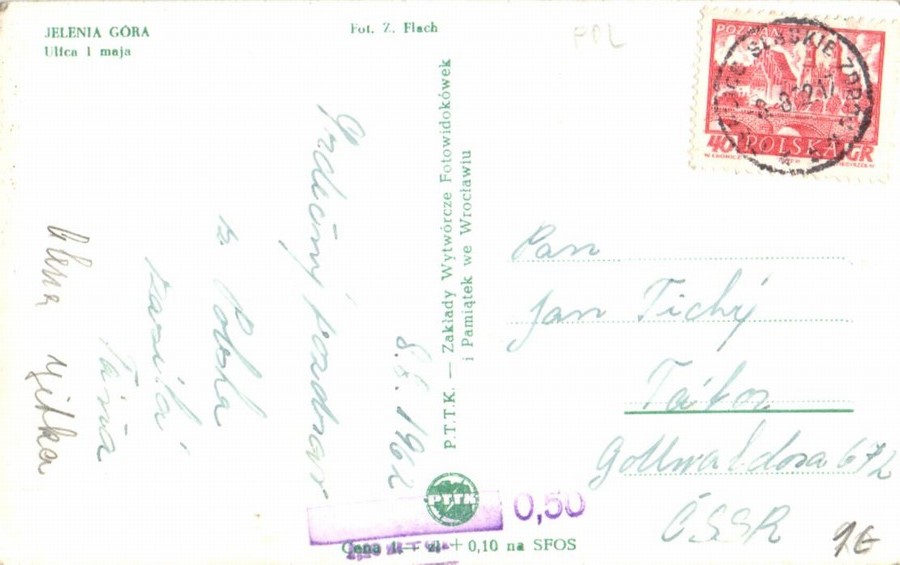 JELENIA GÓRA
Ulica 1 maja
Fot. Z. Flach
POL
POZNAŃ
40 POLSKA GR
P.T.T.K. — Zakłady Wytwórcze Fotowidokówek
i Pamiątek we Wrocławiu
8.8. 1962
Srdečný pozdrav
z Polska
zasílá
Táňa
Alena Jitka
Pan
Jan Tichý
Tábor
Gottwaldova 672
ČSSR
PTTK
0,50
Cena zł + 0,10 na SFOS
1€